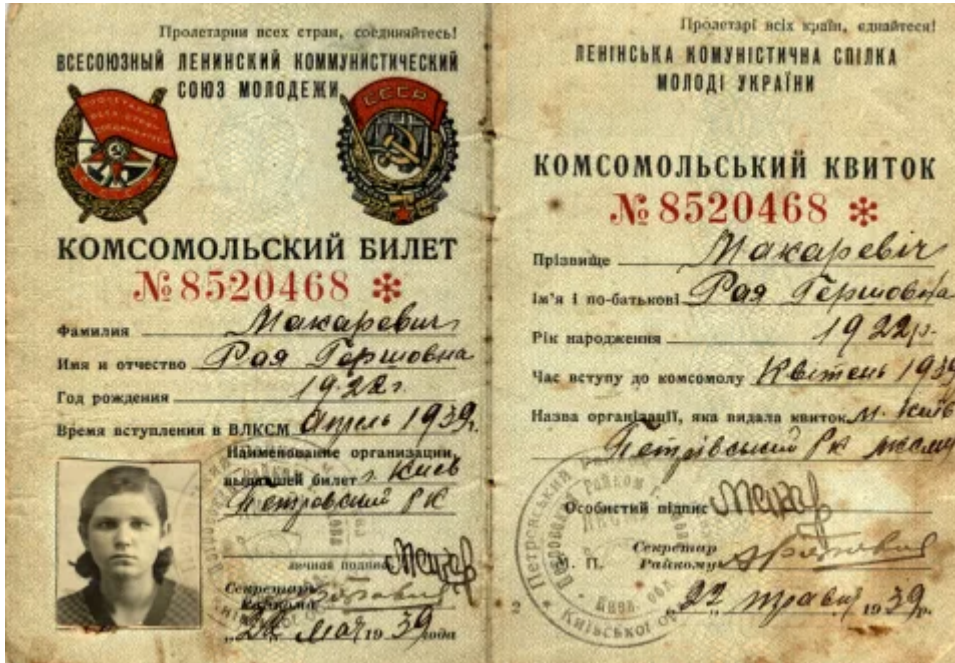 Пролетарии всех стран, соединяйтесь!
ВСЕСОЮЗНЫЙ ЛЕНИНСКИЙ КОММУНИСТИЧЕСКИЙ
СОЮЗ МОЛОДЕЖИ
СССР
КОМСОМОЛЬСКИЙ БИЛЕТ
№ 8520468 *
Фамилия Макаревич
Имя и отчество Рая Гершовна
Год рождения 1922 г.
Время вступления в ВЛКСМ Апрель 1939 г.
Наименование организации,
выдавшей билет г. Киев
Петровский РК
личная подпись Макар
Секретарь
Райкома
"22" мая 1939 года
Пролетарі всіх країн, єднайтеся!
ЛЕНІНСЬКА КОМУНІСТИЧНА СПІЛКА
МОЛОДІ УКРАЇНИ
КОМСОМОЛЬСЬКИЙ КВИТОК
№ 8520468 *
Прізвище Макаревіч
Ім'я і по-батькові Рая Гершовна
Рік народження 1922 р.
Час вступу до комсомолу Квітень 1939
Назва організації, яка видала квиток м. Київ
Петрівський РК ЛКСМУ
Особистий підпис Макар
Секретар
М. П. Райкому
2
"22" травня 1939 р.